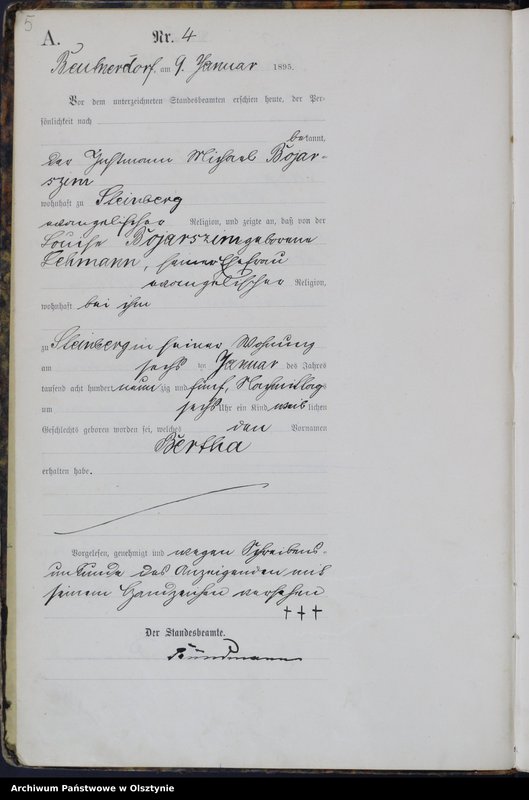 5
A.
Nr. 4
Beutnerdorf, am 9. Januar 1895.
Vor dem unterzeichneten Standesbeamten erschien heute, der Per-
sönlichkeit nach
bekannt,
der Instmann Michael Bojar-
szim
wohnhaft zu Steinberg
evangelischer Religion, und zeigte an, daß von der
Louise Bojarszim geborene
Lehmann, seiner Ehefrau
evangelischer Religion,
wohnhaft bei ihm
zu Steinberg in seiner Wohnung
am sechs ten Januar des Jahres
tausend acht hundert neun zig und fünf, Nachmittags
um sechs Uhr ein Kind weib lichen
Geschlechts geboren worden sei, welches den Vornamen
Bertha
erhalten habe.
Vorgelesen, genehmigt und wegen Schreibens-
unkunde des Anzeigenden mit
seinem Handzeichen versehen
+++
Der Standesbeamte.
Archiwum Państwowe w Olsztynie